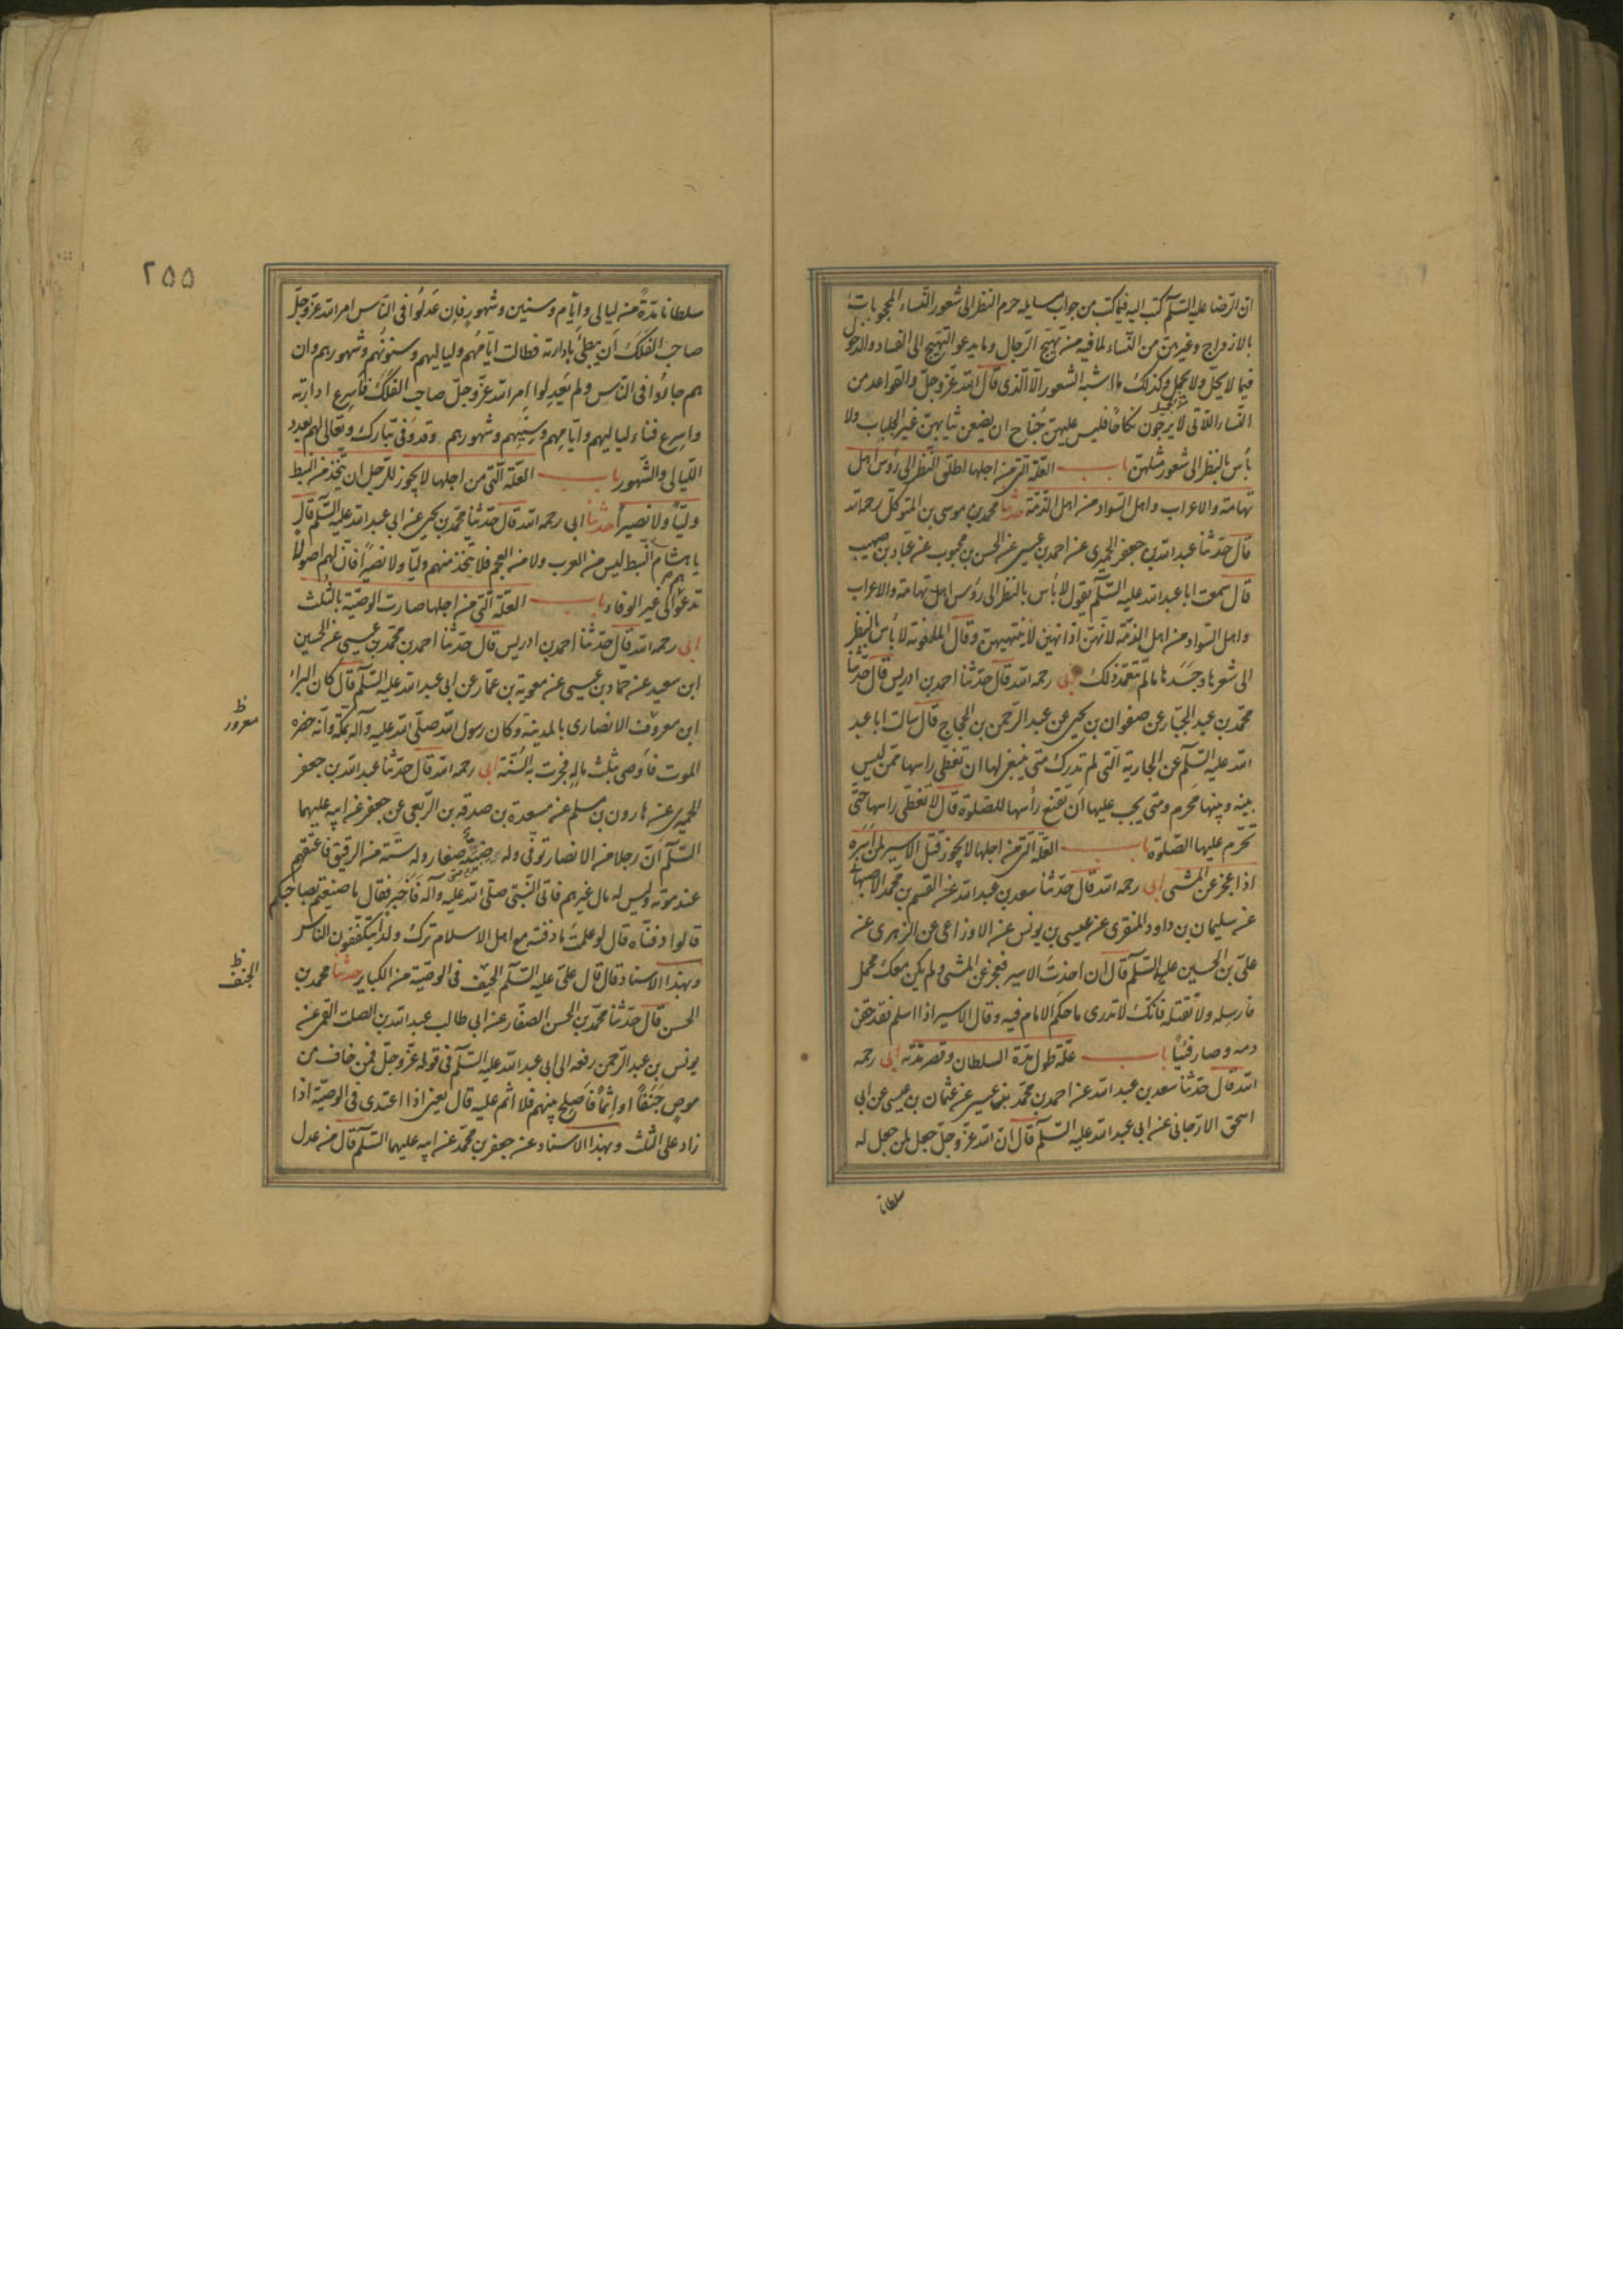 ان الرضا عليه السلام كتب اليه فيما كتب من جواب مسايله حرم النظر الى شعور النساء المحجوبات
بالازواج وغيرهن من النساء لما فيه من تهيج الرجال وما يدعو التهيج الى الفساد والدخول
فيما لا يحل ولا يجمل وكذلك ما اشبه الشعور الا الذى قال الله عز وجل والقواعد من
النساء اللاتى لا يرجون نكاحا فليس عليهن جناح ان يضعن ثيابهن غير الجلباب ولا
بأس بالنظر الى شعور مثلهن باب العلة التى من اجلها اطلق النظر الى رؤس اهل
تهامة والاعراب واهل السواد من اهل الذمة حدثنا محمد بن موسى بن المتوكل رحمه الله
قال حدثنا عبد الله بن جعفر الحميرى عن احمد بن عيسى عن الحسن بن محبوب عن عباد بن صهيب
قال سمعت ابا عبد الله عليه السلام يقول لا بأس بالنظر الى رؤس اهل تهامة والاعراب
واهل السواد من اهل الذمة لانهن اذا نهين لا ينتهين وقال المغلوبة لا بأس بالنظر
الى شعرها وجسدها ما لم يتعمد ذلك ابى رحمه الله قال حدثنا احمد بن ادريس قال حدثنا
محمد بن عبد الجبار عن صفوان بن يحيى عن عبد الرحمن بن الحجاج قال سالت ابا عبد
الله عليه السلام عن الجارية التى لم تدرك متى ينبغى لها ان تغطى راسها ممن ليس
بينه وبينها محرم ومتى يجب عليها ان تقنع رأسها للصلوة قال لا تغطى راسها حتى
تحرم عليها الصلوة باب العلة التى من اجلها لا يجوز قتل الاسير لمن اسره
اذا عجز عن المشى ابى رحمه الله قال حدثنا سعد بن عبد الله عن القسم بن محمد الاصبهانى
عن سليمان بن داود المنقرى عن عيسى بن يونس عن الاوزاعى عن الزهرى عن
على بن الحسين عليه السلام قال ان اخذت الاسير فعجز عن المشى ولم يكن معك محمل
فارسله ولا تقتله فانك لا تدرى ما حكم الامام فيه وقال الاسير اذا اسلم فقد حقن
دمه وصار فيئا باب علة طول مدة السلطان وقصر مدته ابى رحمه
الله قال حدثنا سعد بن عبد الله عن احمد بن محمد بن عيسى عن عثمان بن عيسى عن ابى
اسحق الارجانى عن ابى عبد الله عليه السلام قال ان الله عز وجل جعل لمن جعل له
سلطانا
٢٥٥
سلطانا مدة من ليالى وايام وسنين وشهور فان عدلوا فى الناس امر الله عز وجل
صاحب الفلك ان يبطئ بادارته فطالت ايامهم ولياليهم وسنونهم وشهورهم وان
هم جاروا فى الناس ولم يعدلوا امر الله عز وجل صاحب الفلك فاسرع ادارته
واسرع فناء لياليهم وايامهم وسنيهم وشهورهم وقد وفى تبارك وتعالى لهم بعدد
الليالى والشهور باب العلة التى من اجلها لا يجوز للرجل ان يتخذ من النبط
وليا ولا نصيرا حدثنا ابى رحمه الله قال حدثنا محمد بن يحيى عن ابى عبد الله عليه السلام قال
يا هشام النبط ليس من العرب ولا من العجم فلا تتخذ منهم وليا ولا نصيرا فان لهم اصولا
تدعوا الى غير الوفاء باب العلة التى من اجلها صارت الوصية بالثلث
ابى رحمه الله قال حدثنا احمد بن ادريس قال حدثنا احمد بن محمد بن عيسى عن الحسين
ابن سعيد عن حماد بن عيسى عن معوية بن عمار عن ابى عبد الله عليه السلام قال كان البراء
ابن معروف الانصارى بالمدينة وكان رسول الله صلى الله عليه وآله بمكة وانه حضره
معرور ظ
الموت فاوصى بثلث ماله فجرت به السنة ابى رحمه الله قال حدثنا عبد الله بن جعفر
الحميرى عن هارون بن مسلم عن مسعدة بن صدقة بن الربعى عن جعفر عن ابيه عليهما
السلام ان رجلا من الانصار توفى وله صبية صغار وله ستة من الرقيق فاعتقهم
عند موته وليس له مال غيرهم فاتى النبى صلى الله عليه وآله فاخبر فقال ما صنعتم بصاحبكم
قالوا دفناه قال لو علمت ما دفنته مع اهل الاسلام ترك ولده يتكففون الناس
وبهذا الاسناد قال قال على عليه السلام الحيف فى الوصية من الكباير حدثنا محمد بن
الجنف ظ
الحسن قال حدثنا محمد بن الحسن الصفار عن ابى طالب عبد الله بن الصلت القمى عن
يونس بن عبد الرحمن رفعه الى ابى عبد الله عليه السلام فى قوله عز وجل فمن خاف من
موص جنفا او اثما فاصلح بينهم فلا اثم عليه قال يعنى اذا اعتدى فى الوصية اذا
زاد على الثلث وبهذا الاسناد عن جعفر بن محمد عن ابيه عليهما السلام قال من عدل